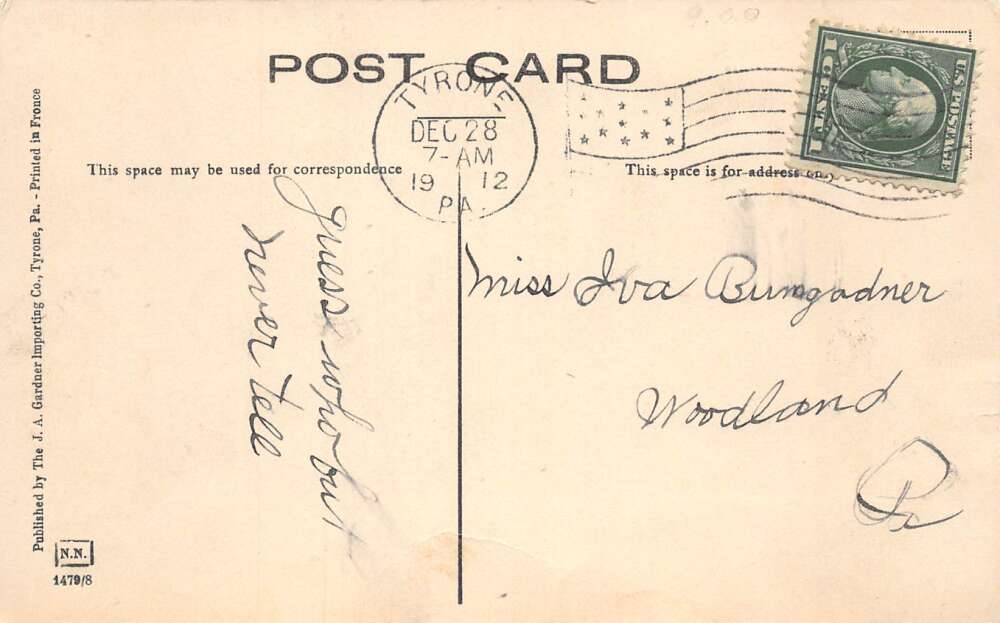 9.00
POST CARD
TYRONE
DEC 28
7-AM
19 12
PA.
1 CENT 1
U.S. POSTAGE
This space may be used for correspondence
This space is for address only
Guess who but
never tell
Miss Iva Bumgadner
Woodland
Pa
Published by The J. A. Gardner Importing Co., Tyrone, Pa. - Printed in Fronce
N.N.
1479/8